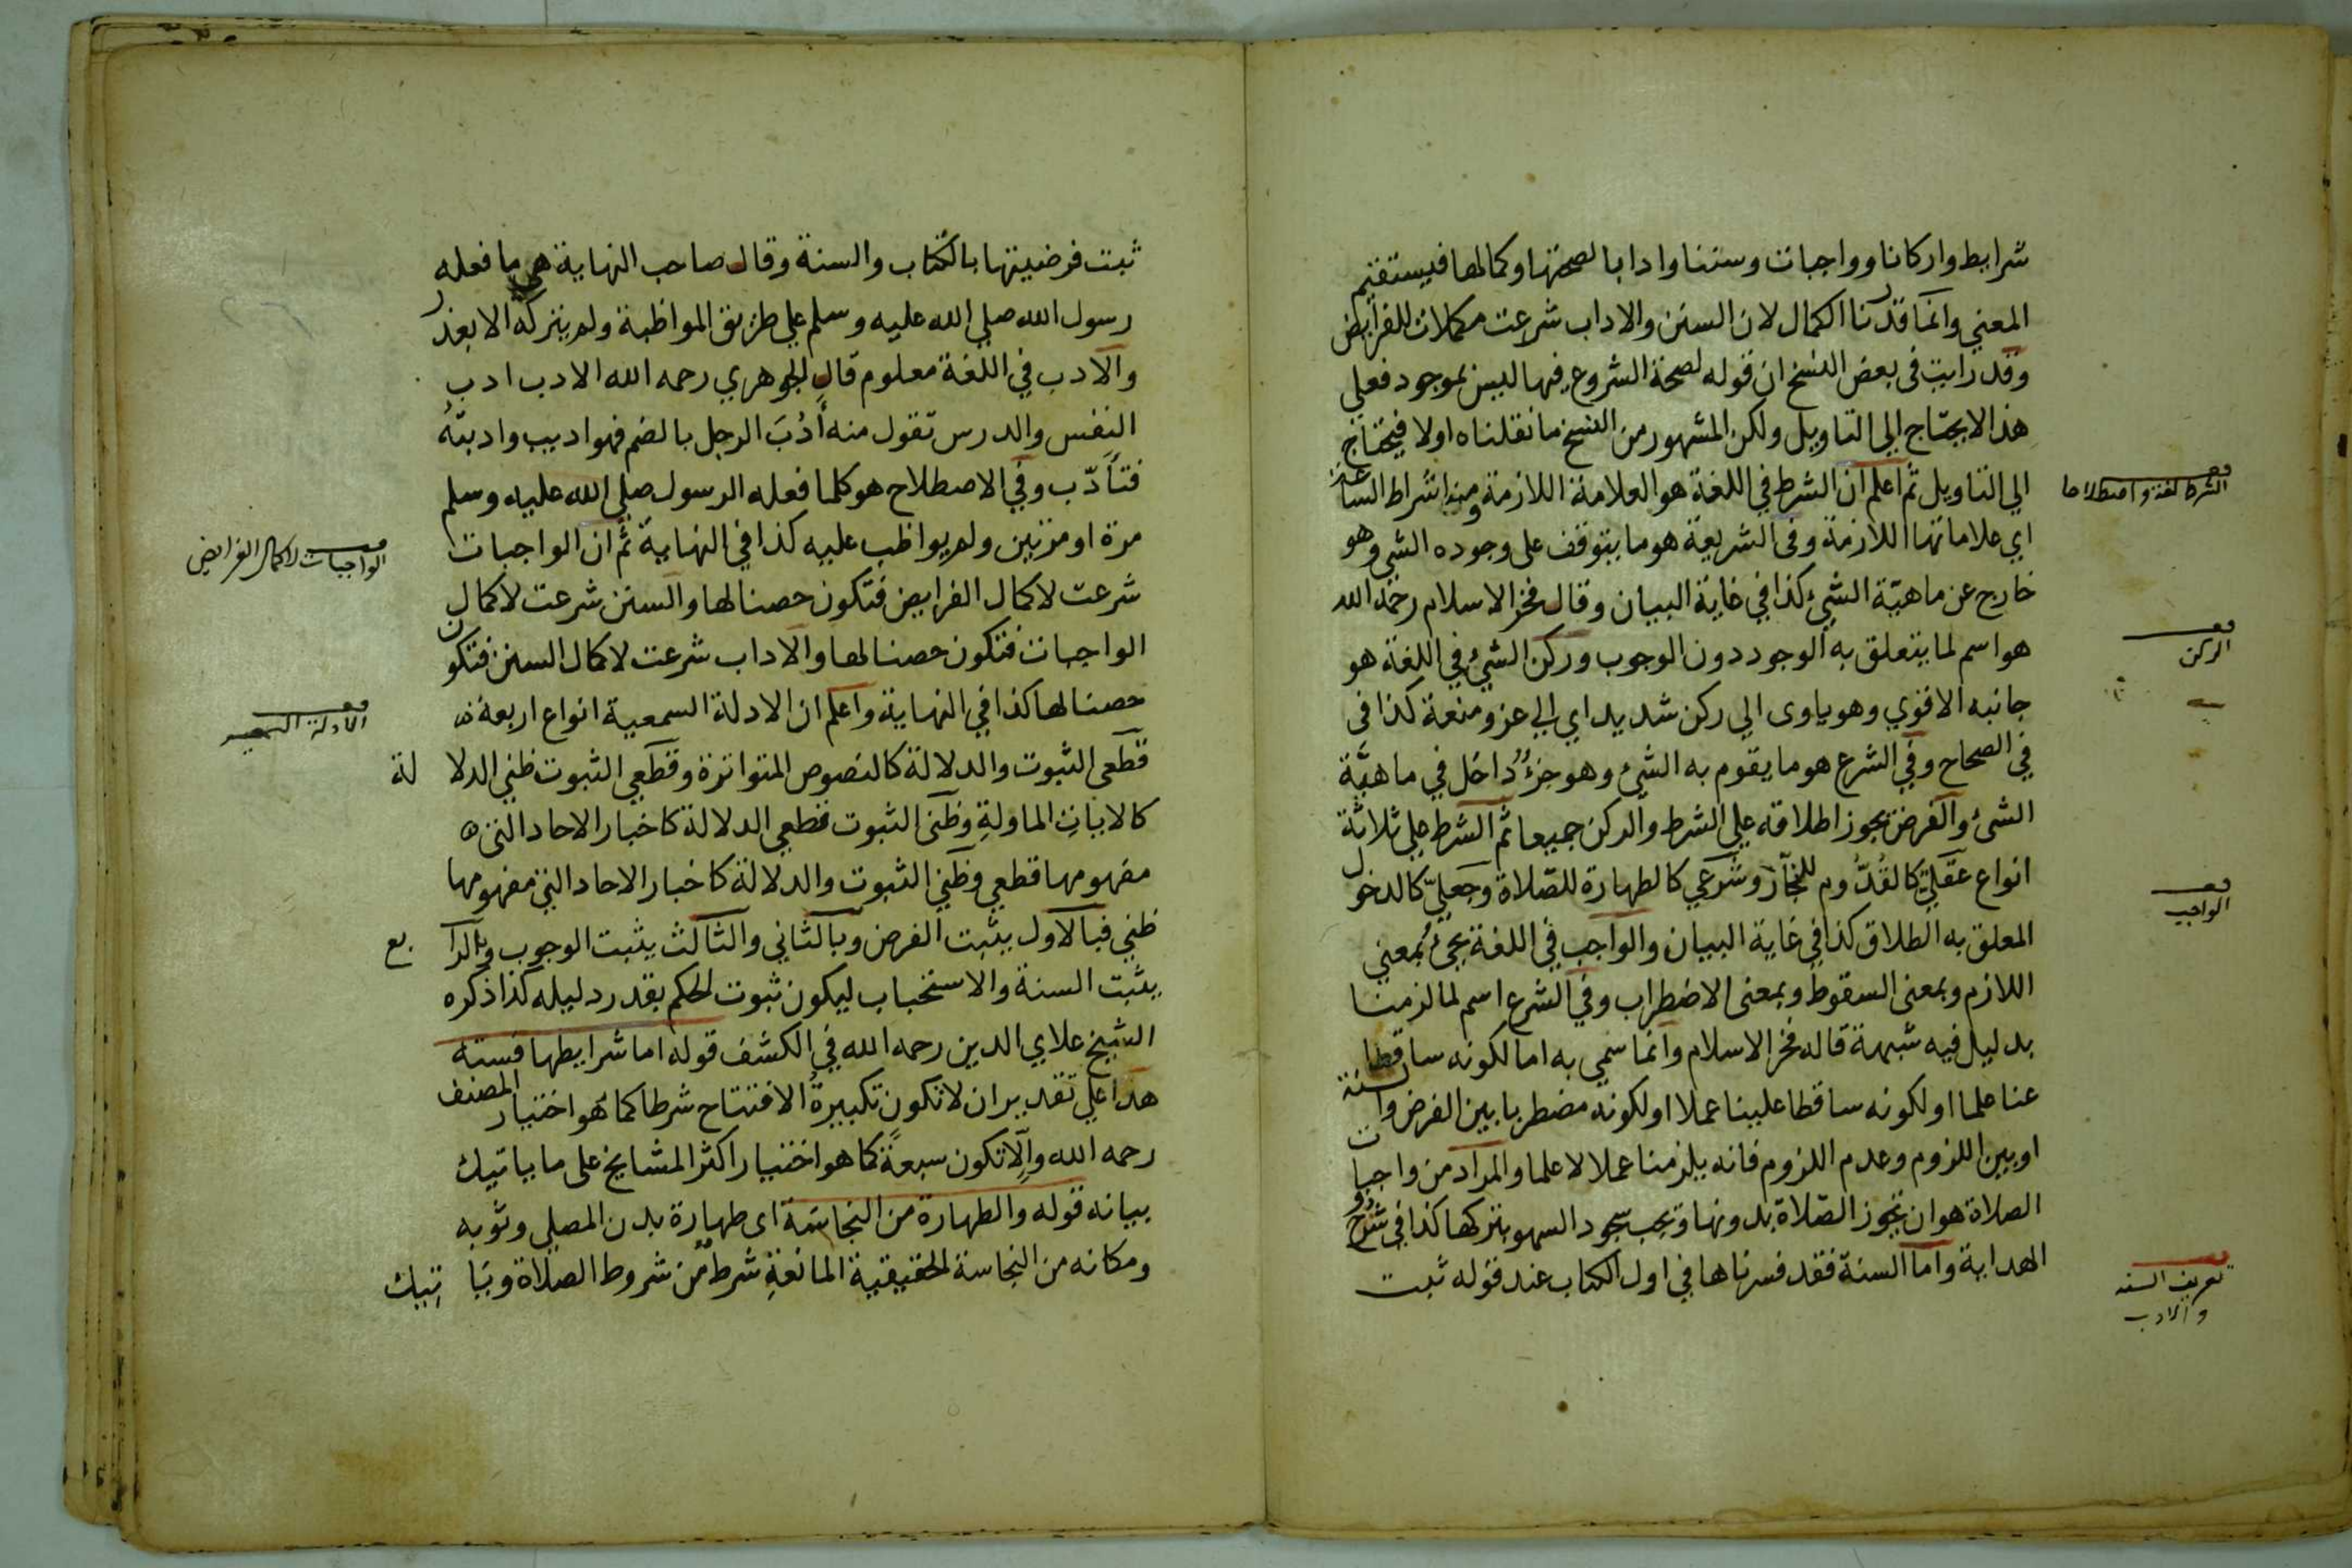 شرايط واركانا وواجبات وسننا وادابا لصحتها وكمالها فيستقيم
المعني وانما قدرنا الكمال لان السنن والاداب شرعت مكملات للفرايض
وقد رايت في بعض النسخ ان قوله لصحة الشروع فيها ليس بموجود فعلي
هذا لا يحتاج الي التاويل ولكن المشهور من النسخ ما نقلناه اولا فيحتاج
الي التاويل ثم اعلم ان الشرط في اللغة هو العلامة اللازمة ومنه اشراط الساعة
الشرط لغة واصطلاحا
اي علاماتها اللازمة وفي الشريعة هو ما يتوقف على وجوده الشي وهو
خارج عن ماهيّة الشيء كذا في غاية البيان وقال فخر الاسلام رحمه الله
هو اسم لما يتعلق به الوجود دون الوجوب وركن الشيء في اللغة هو
الركن
جانبه الاقوي وهو ياوى الي ركن شديد اي الي عز ومنعة كذا في
في الصحاح وفي الشرع هو ما يقوم به الشيء وهو جزءٌ داخل في ماهيّة
الشيء والفرض يجوز اطلاقه علي الشرط والركن جميعا ثم الشرط علي ثلاثة
انواع عقليّ كالقُدُّوم للنجّار وشرعي كالطهارة للصّلاة وجعليّ كالدخول
الواجب
المعلق به الطلاق كذا في غاية البيان والواجب في اللغة يجيُ بمعني
اللازم وبمعنى السقوط وبمعنى الاضطراب وفي الشرع اسم لما لزمنا
بدليل فيه شبهة قاله فخر الاسلام وانما سمي به اما لكونه ساقطا
عنا علما او لكونه ساقطا علينا عملا او لكونه مضطربا بين الفرض والسنة
او بين اللزوم وعدم اللزوم فانه يلزمنا عملا لا علما والمراد من واجبات
الصلاة هو ان تجوز الصّلاة بدونها ويجب سجود السهو بتركها كذا في شروح
الهداية واما السنة فقد فسرناها في اول الكتاب عند قوله ثبت
تعريف السنه
والادب
ثبت فرضيتها بالكتاب والسنة وقال صاحب النهاية هي ما فعله
رسول الله صلي الله عليه وسلم علي طريق المواظبة ولم يتركه الا بعذر
والادب في اللغة معلوم قال الجوهري رحمه الله الادب ادب
النفس والدرس تقول منه أدُبَ الرجل بالضم فهو اديب وادبتهُ
فتأدّب وفي الاصطلاح هو كلما فعله الرسول صلي الله عليه وسلم
مرة او مرتين ولم يواظب عليه كذا في النهاية ثم ان الواجبات
الواجبات لاكمال الفرايض
شرعت لاكمال الفرايض فتكون حصنا لها والسنن شرعت لاكمال
الواجبات فتكون حصنا لها والاداب شرعت لاكمال السنن فتكون
حصنا لها كذا في النهاية واعلم ان الادلة السمعية انواع اربعة
الادلة السمعيه
قطعي الثبوت والدلالة كالنصوص المتواترة وقطعي الثبوت ظني الدلالة
كالايات الماولةِ وظني الثبوت قطعي الدلالة كاخبار الاحاد التي
مفهومها قطعي وظني الثبوت والدلالة كاخبار الاحاد التي مفهومها
ظني فبالاول يثبت الفرض وبالثاني والثالث يثبت الوجوب وبالرابع
يثبت السنة والاستحباب ليكون ثبوت الحكم بقدر دليله كذا ذكره
الشيخ علاي الدين رحمه الله في الكشف قوله اما شرايطها فستة
هذا علي تقدير ان لا تكون تكبيرةُ الافتتاح شرطا كما هو اختيار المصنف
رحمه الله والّا تكون سبعةً كما هو اختيار اكثر المشايخ على ما ياتيك
بيانه قوله والطهارة من النجاسة اى طهارة بدن المصلي وثوبه
ومكانه من النجاسة الحقيقية المانعةِ شرطٌ من شروط الصلاة وياتيك